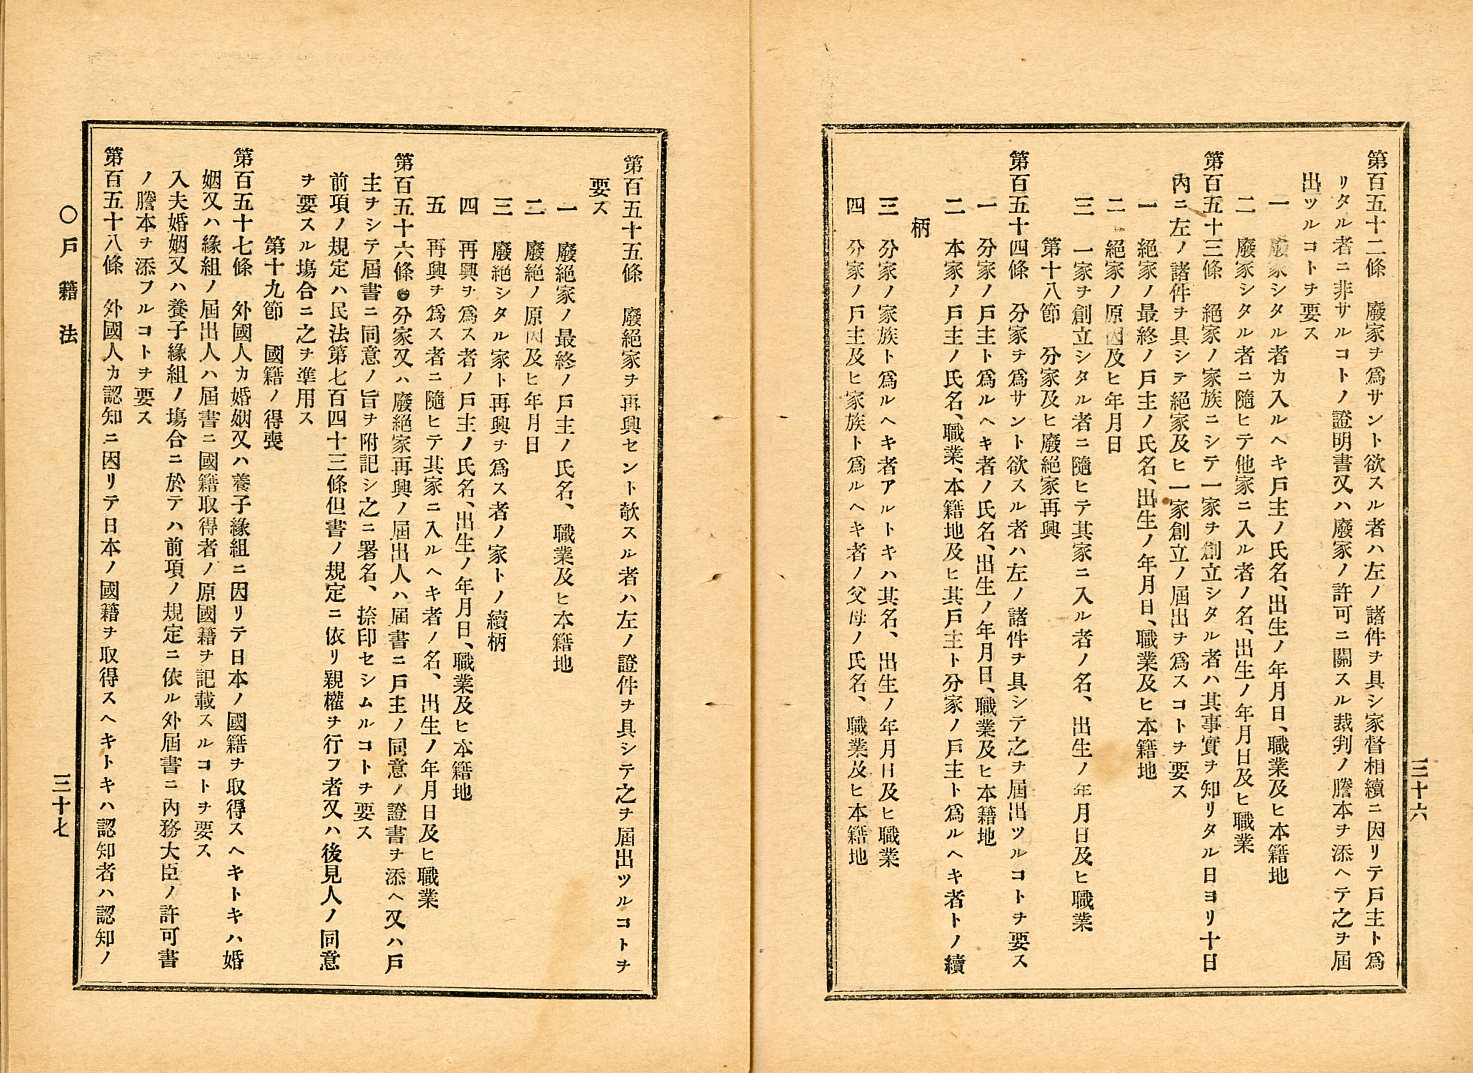 第百五十二條　廢家ヲ爲サント欲スル者ハ左ノ諸件ヲ具シ家督相續ニ因リテ戸主ト爲
リタル者ニ非サルコトノ證明書又ハ廢家ノ許可ニ關スル裁判ノ謄本ヲ添ヘテ之ヲ屆
出ツルコトヲ要ス
一　廢家シタル者カ入ルヘキ戸主ノ氏名、出生ノ年月日、職業及ヒ本籍地
二　廢家シタル者ニ隨ヒテ他家ニ入ル者ノ名、出生ノ年月日及ヒ職業
第百五十三條　絕家ノ家族ニシテ一家ヲ創立シタル者ハ其事實ヲ知リタル日ヨリ十日
內ニ左ノ諸件ヲ具シテ絕家及ヒ一家創立ノ屆出ヲ爲スコトヲ要ス
一　絕家ノ最終ノ戸主ノ氏名、出生ノ年月日、職業及ヒ本籍地
二　絕家ノ原因及ヒ年月日
三　一家ヲ創立シタル者ニ隨ヒテ其家ニ入ル者ノ名、出生ノ年月日及ヒ職業
第十八節　分家及ヒ廢絕家再興
第百五十四條　分家ヲ爲サント欲スル者ハ左ノ諸件ヲ具シテ之ヲ屆出ツルコトヲ要ス
一　分家ノ戸主ト爲ルヘキ者ノ氏名、出生ノ年月日、職業及ヒ本籍地
二　本家ノ戸主ノ氏名、職業、本籍地及ヒ其戸主ト分家ノ戸主ト爲ルヘキ者トノ續
柄
三　分家ノ家族ト爲ルヘキ者アルトキハ其名、出生ノ年月日及ヒ職業
四　分家ノ戸主及ヒ家族ト爲ルヘキ者ノ父母ノ氏名、職業及ヒ本籍地
三十六
第百五十五條　廢絕家ヲ再興セント欲スル者ハ左ノ證件ヲ具シテ之ヲ屆出ツルコトヲ
要ス
一　廢絕家ノ最終ノ戸主ノ氏名、職業及ヒ本籍地
二　廢絕ノ原因及ヒ年月日
三　廢絕シタル家ト再興ヲ爲ス者ノ家トノ續柄
四　再興ヲ爲ス者ノ戸主ノ氏名、出生ノ年月日、職業及ヒ本籍地
五　再興ヲ爲ス者ニ隨ヒテ其家ニ入ルヘキ者ノ名、出生ノ年月日及ヒ職業
第百五十六條　分家又ハ廢絕家再興ノ屆出人ハ屆書ニ戸主ノ同意ノ證書ヲ添ヘ又ハ戸
主ヲシテ屆書ニ同意ノ旨ヲ附記シ之ニ署名、捺印セシムルコトヲ要ス
前項ノ規定ハ民法第七百四十三條但書ノ規定ニ依リ親權ヲ行フ者又ハ後見人ノ同意
ヲ要スル塲合ニ之ヲ準用ス
第十九節　國籍ノ得喪
第百五十七條　外國人カ婚姻又ハ養子緣組ニ因リテ日本ノ國籍ヲ取得スヘキトキハ婚
姻又ハ緣組ノ屆出人ハ屆書ニ國籍取得者ノ原國籍ヲ記載スルコトヲ要ス
入夫婚姻又ハ養子緣組ノ塲合ニ於テハ前項ノ規定ニ依ル外屆書ニ內務大臣ノ許可書
ノ謄本ヲ添フルコトヲ要ス
第百五十八條　外國人カ認知ニ因リテ日本ノ國籍ヲ取得スヘキトキハ認知者ハ認知ノ
〇戸籍法
三十七